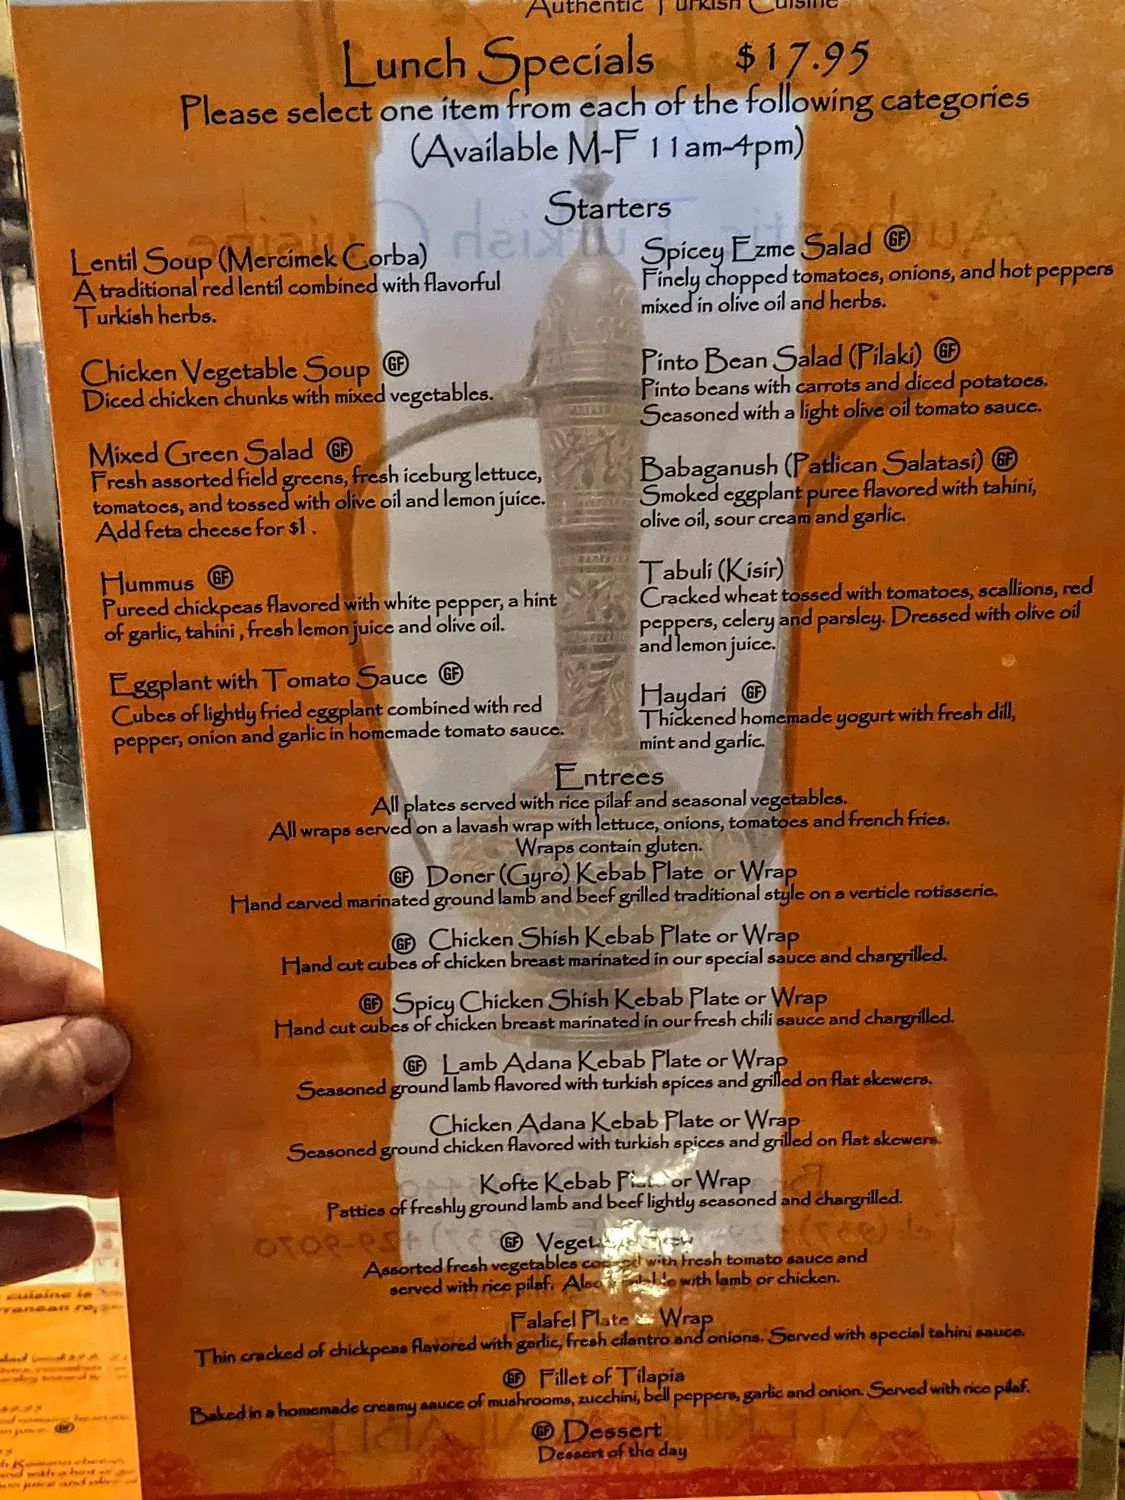 Authentic Turkish Cuisine
Lunch Specials $17.95
Please select one item from each of the following categories
(Available M-F 11am-4pm)
Starters
Lentil Soup (Mercimek Corba)
A traditional red lentil combined with flavorful
Turkish herbs.
Chicken Vegetable Soup GF
Diced chicken chunks with mixed vegetables.
Mixed Green Salad GF
Fresh assorted field greens, fresh iceburg lettuce,
tomatoes, and tossed with olive oil and lemon juice.
Add feta cheese for $1 .
Hummus GF
Pureed chickpeas flavored with white pepper, a hint
of garlic, tahini , fresh lemon juice and olive oil.
Eggplant with Tomato Sauce GF
Cubes of lightly fried eggplant combined with red
pepper, onion and garlic in homemade tomato sauce.
Spicey Ezme Salad GF
Finely chopped tomatoes, onions, and hot peppers
mixed in olive oil and herbs.
Pinto Bean Salad (Pilaki) GF
Pinto beans with carrots and diced potatoes.
Seasoned with a light olive oil tomato sauce.
Babaganush (Patlican Salatasi) GF
Smoked eggplant puree flavored with tahini,
olive oil, sour cream and garlic.
Tabuli (Kisir)
Cracked wheat tossed with tomatoes, scallions, red
peppers, celery and parsley. Dressed with olive oil
and lemon juice.
Haydari GF
Thickened homemade yogurt with fresh dill,
mint and garlic.
Entrees
All plates served with rice pilaf and seasonal vegetables.
All wraps served on a lavash wrap with lettuce, onions, tomatoes and french fries.
Wraps contain gluten.
GF Doner (Gyro) Kebab Plate or Wrap
Hand carved marinated ground lamb and beef grilled traditional style on a verticle rotisserie.
GF Chicken Shish Kebab Plate or Wrap
Hand cut cubes of chicken breast marinated in our special sauce and chargrilled.
GF Spicy Chicken Shish Kebab Plate or Wrap
Hand cut cubes of chicken breast marinated in our fresh chili sauce and chargrilled.
GF Lamb Adana Kebab Plate or Wrap
Seasoned ground lamb flavored with turkish spices and grilled on flat skewers.
Chicken Adana Kebab Plate or Wrap
Seasoned ground chicken flavored with turkish spices and grilled on flat skewers.
Kofte Kebab Plate or Wrap
Patties of freshly ground lamb and beef lightly seasoned and chargrilled.
GF
Assorted fresh vegetables cooked with fresh tomato sauce and
served with rice pilaf. Also available with lamb or chicken.
Falafel Plate or Wrap
Thin cracked of chickpeas flavored with garlic, fresh cilantro and onions. Served with special tahini sauce.
GF Fillet of Tilapia
Baked in a homemade creamy sauce of mushrooms, zucchini, bell peppers, garlic and onion. Served with rice pilaf.
GF Dessert
Dessert of the day